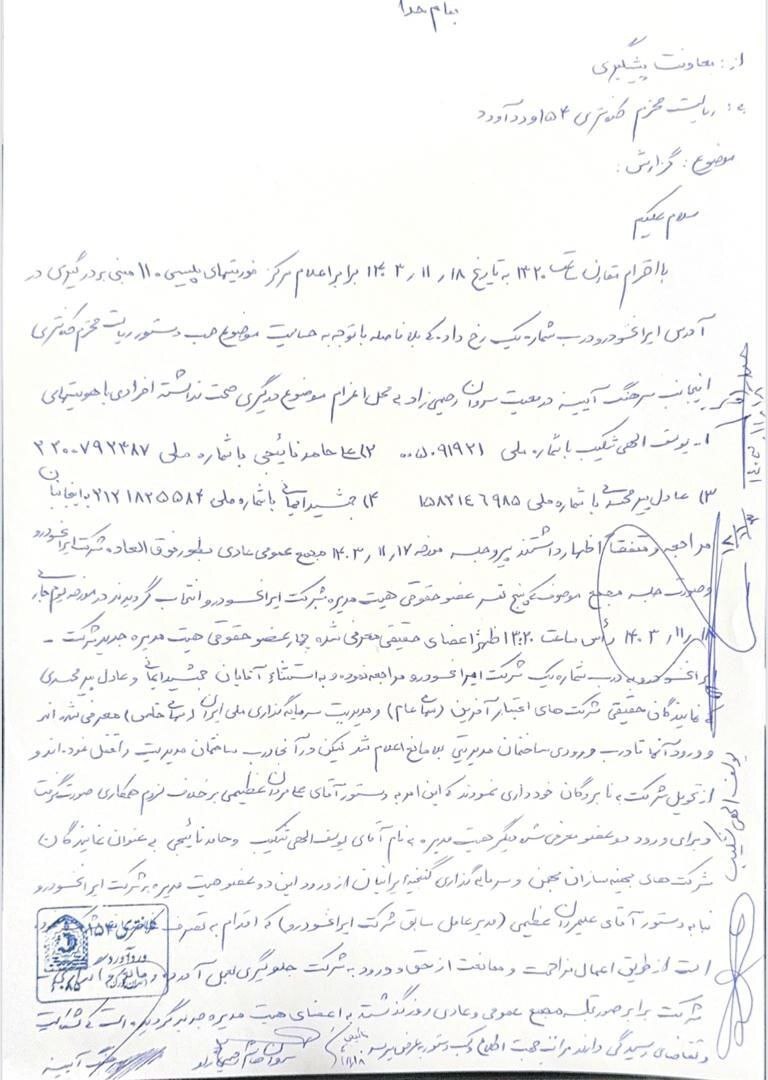 بنام خدا
از: معاونت پیشگیری
به: ریاست محترم کلانتری ۱۵۴ وردآورد
موضوع: گزارش:
سلام علیکم
با احترام تقارن ساعت ۱۳:۲۰ به تاریخ ۱۴۰۳٫۱۱٫۱۸ برابر اعلام مرکز فوریتهای پلیسی ۱۱۰ مبنی بر درگیری در
آدرس ایرانخودرو درب شماره یک رخ داده که بلافاصله با توجه به حساسیت موضوع حسب دستور ریاست محترم کلانتری
اینجانب سرهنگ آیینه در معیت ستوان رحیمی راد به محل اعزام موضوع درگیری صحت نداشته افرادی با هویتهای
۱- یوسف الهی شکیب با شماره ملی ۰۰۵۰۹۱۹۲۱ ۲) حامد نائیجی با شماره ملی ۲۲۰۰۷۹۲۴۸۷
۳) عادل پیرمحمدی با شماره ملی ۱۵۸۲۱۴۶۹۸۵ ۴) جمشید ایمانی با شماره ملی ۲۱۲۱۸۲۵۵۸۴ به اینجانبان
مراجعه و متفقاً اظهار داشتند پیرو جلسه مورخه ۱۴۰۳٫۱۱٫۱۷ مجمع عمومی عادی بطور فوق العاده شرکت ایرانخودرو
و صورت جلسه مجمع موصوف که پنج نفر عضو حقوقی هیت مدیره شرکت ایرانخودرو انتخاب گردیدند در مورخه یوم جاری
۱۴۰۳٫۱۱٫۱۸ رأس ساعت ۱۳:۲۰ ظهر اعضای حقیقی معرفی شده چهار عضو حقوقی هیت مدیره جدید شرکت -
ایرانخودرو به درب شماره یک شرکت ایرانخودرو مراجعه نموده و به استثناء آقایان جمشید ایمانی و عادل پیرمحمدی
که نمایندگان حقیقی شرکت های اعتبار آفرین (سهامی عام) و مدیریت سرمایه گذاری ملی ایران (سهامی خاص) معرفی شده اند
و ورود آنها تا درب ورودی ساختمان مدیریتی بلامانع اعلام شد لیکن در آنجا درب ساختمان مدیریت را قفل نموده اند و
از تحویل شرکت به نامبردگان خودداری نمودند که این امر به دستور آقای علیمردان عظیمی بر خلاف لزوم همکاری صورت گرفت
و برای ورود دو عضو معرفی شده دیگر هیت مدیره به نام آقای یوسف الهی شکیب و حامد نائیجی به عنوان نمایندگان
شرکت های بهینه سازان بهمن و سرمایه گذاری گنجینه ایرانیان از ورود این دو عضو هیت مدیره به شرکت ایرانخودرو
بنا به دستور آقای علیمردان عظیمی (مدیرعامل سابق شرکت ایرانخودرو) که اقدام به تصرف
است از طریق اعمال مزاحمت و ممانعت از حق و ورود به شرکت جلوگیری بعمل آمده
شرکت برابر صورتجلسه مجمع عمومی و عادی روز گذشته به اعضای هیت مدیره جدید گردیده است که شکایت
و تقاضای رسیدگی دارند مراتب جهت اطلاع و کسب دستور بعرض میرسد
سرهنگ آیینه
کلانتری ۱۵۴
وردآورد
یوسف الهی شکیب